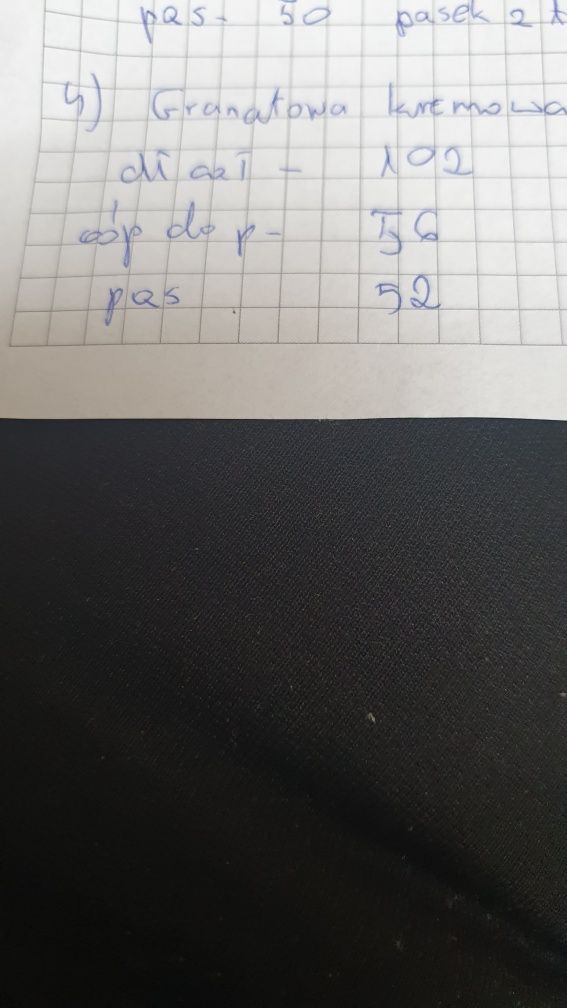 pas- 50 pasek 2
4) Granatowa kremowa
dł - 102
do p- 56
pas 52